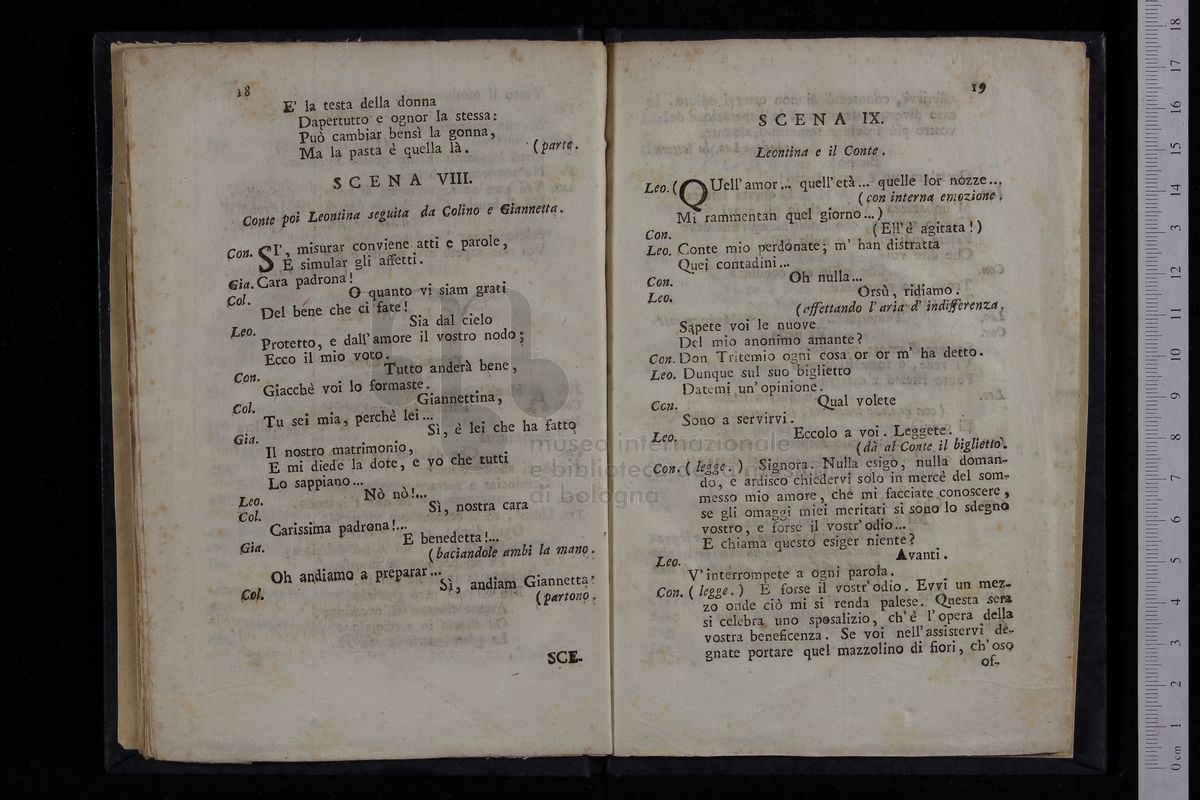 18
E' la testa della donna
Dapertutto e ognor la stessa:
Può cambiar bensì la gonna,
Ma la pasta è quella là. (parte.
SCENA VIII.
Conte poi Leontina seguita da Colino e Giannetta.
Con. SI', misurar conviene atti e parole,
E simular gli affetti.
Gia. Cara padrona!
Col. O quanto vi siam grati
Del bene che ci fate!
Leo. Sia dal cielo
Protetto, e dall'amore il vostro nodo;
Ecco il mio voto.
Con. Tutto anderà bene,
Giacchè voi lo formaste.
Col. Giannettina,
Tu sei mia, perchè lei...
Gia. Sì, è lei che ha fatto
Il nostro matrimonio,
E mi diede la dote, e vo che tutti
Lo sappiano...
Leo. Nò nò!...
Col. Sì, nostra cara
Carissima padrona!...
Gia. E benedetta!...
(baciandole ambi la mano.
Oh andiamo a preparar...
Col. Sì, andiam Giannetta:
(partono.
SCE-
19
SCENA IX.
Leontina e il Conte.
Leo. (QUell'amor... quell'età... quelle lor nozze...
(con interna emozione.
Mi rammentan quel giorno...)
Con. (Ell'è agitata!)
Leo. Conte mio perdonate; m' han distratta
Quei contadini...
Con. Oh nulla...
Leo. Orsù, ridiamo.
(affettando l'aria d'indifferenza,
Sapete voi le nuove
Del mio anonimo amante?
Con. Don Tritemio ogni cosa or or m' ha detto.
Leo. Dunque sul suo biglietto
Datemi un'opinione.
Con. Qual volete
Sono a servirvi.
Leo. Eccolo a voi. Leggete.
(dà al Conte il biglietto.
Con. (legge.) Signora. Nulla esigo, nulla doman-
do, e ardisco chiedervi solo in mercè del som-
messo mio amore, che mi facciate conoscere,
se gli omaggi miei meritati si sono lo sdegno
vostro, e forse il vostr'odio...
E chiama questo esiger niente?
Leo. Avanti.
V'interrompete a ogni parola.
Con. (legge.) E forse il vostr'odio. Evvi un mez-
zo onde ciò mi si renda palese. Questa sera
si celebra uno sposalizio, ch'è l'opera della
vostra beneficenza. Se voi nell'assistervi de-
gnate portare quel mazzolino di fiori, ch'oso
of-
museo internazionale
e biblioteca della musica
di bologna
0 cm 1 2 3 4 5 6 7 8 9 10 11 12 13 14 15 16 17 18